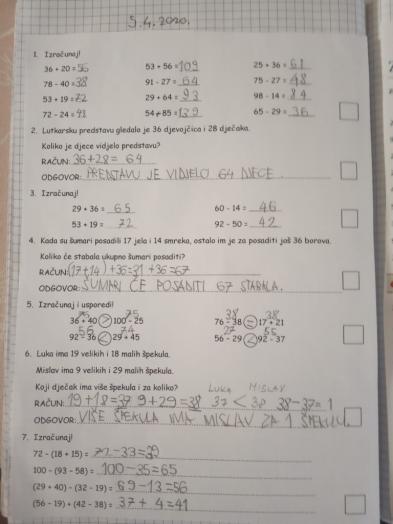 5.4.2020.
1. Izračunaj!
36 + 20 = 56 53 + 56 = 109 25 + 36 = 61
78 - 40 = 38 91 - 27 = 64 75 - 27 = 48
53 + 19 = 72 29 + 64 = 93 98 - 14 = 84
72 - 24 = 54 + 85 = 139 65 - 29 = 36
2. Lutkarsku predstavu gledalo je 36 djevojčica i 28 dječaka.
Koliko je djece vidjelo predstavu?
RAČUN: 36 + 28 = 64
ODGOVOR: PREDSTAVU JE VIDJELO 64 DJECE.
3. Izračunaj!
29 + 36 = 65 60 - 14 = 46
53 + 19 = 72 92 - 50 = 42
4. Kada su šumari posadili 17 jela i 14 smreka, ostalo im je za posaditi još 36 borova.
Koliko će stabala ukupno šumari posaditi?
RAČUN: (17+14)+36=31+36=67
ODGOVOR: ŠUMARI ĆE POSADITI 67 STABALA.
5. Izračunaj i usporedi!
75 75 38 38
36 + 40 > 100 - 25 76 - 38 = 17 + 21
56 74 27 55
92 - 36 < 29 + 45 56 - 29 < 92 - 37
6. Luka ima 19 velikih i 18 malih špekula.
Mislav ima 9 velikih i 29 malih špekula.
Koji dječak ima više špekula i za koliko? LUKA MISLAV
RAČUN: 19+18=37 9+29=38 37 < 38 38-37=1
ODGOVOR: VIŠE ŠPEKULA IMA MISLAV ZA 1 ŠPEKULU.
7. Izračunaj!
72 - (18 + 15) = 72-33=39
100 - (93 - 58) = 100-35=65
(29 + 40) - (32 - 19) = 69-13=56
(56 - 19) + (42 - 38) = 37+4=41